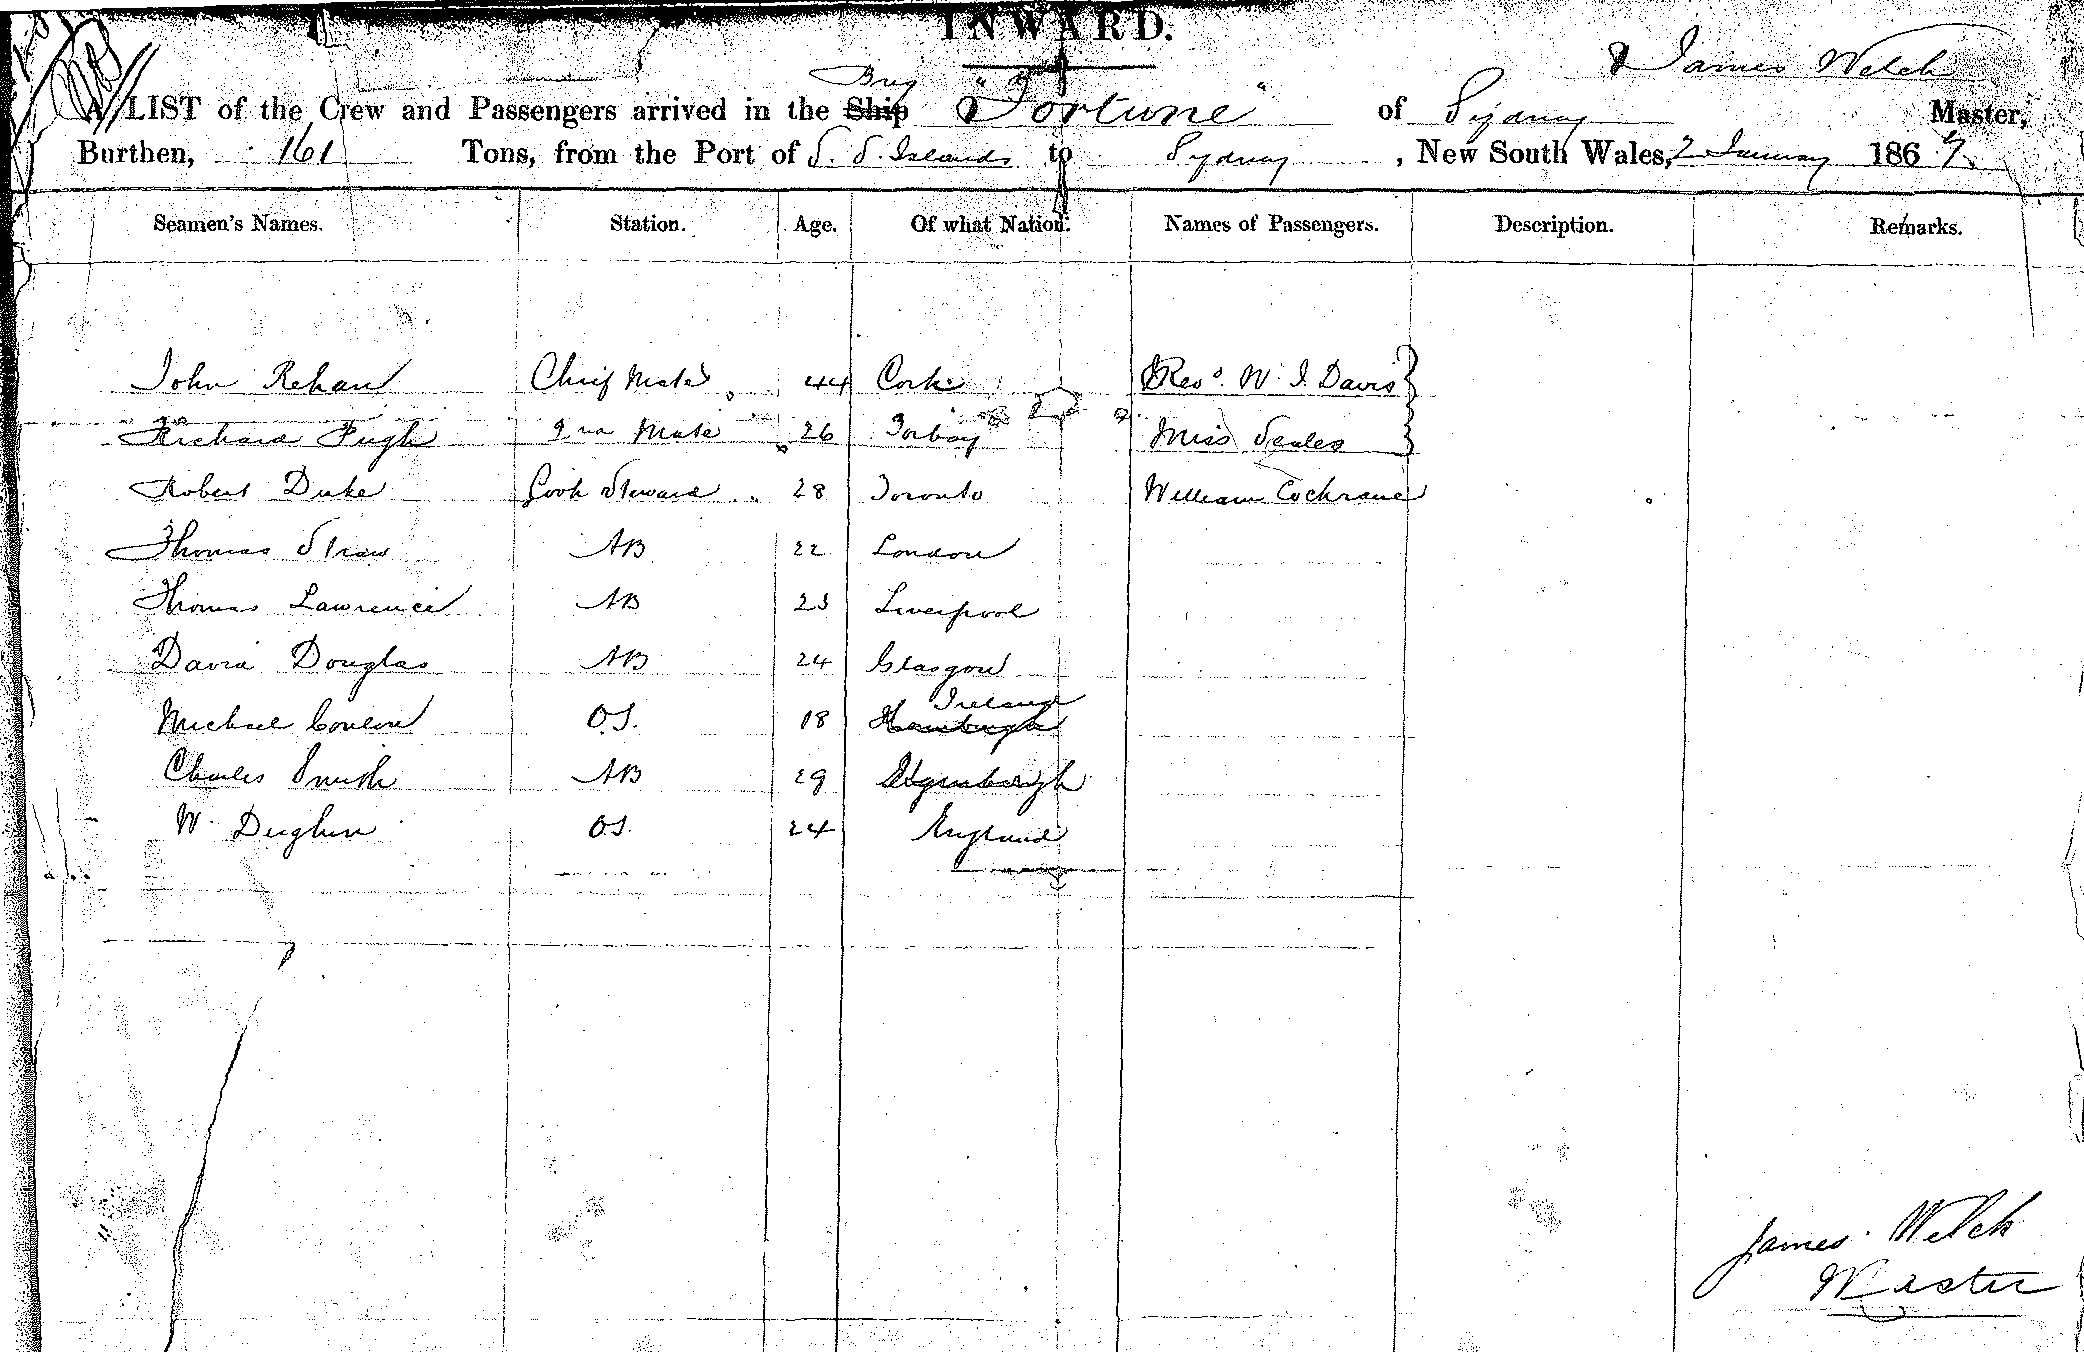 INWARD.
James Welch
Brig
A LIST of the Crew and Passengers arrived in the Ship "Fortune" of Sydney Master,
Burthen, 161 Tons, from the Port of S. S. Islands to Sydney, New South Wales, 2 January 1867
Seamen's Names. Station. Age. Of what Nation. Names of Passengers. Description. Remarks.
John Rehan Chief Mate 44 Cork Revd. W. I. Davis
Richard Pugh 2nd Mate 26 Torbay Miss Scales
Robert Duke Cook Steward 28 Toronto William Cochrane
Thomas Straw AB 22 London
Thomas Lawrence AB 23 Liverpool
David Douglas AB 24 Glasgow
Ireland
Michael OS. 18 Hamburgh
Charles Smith AB 29
W. OS. 24 England
James Welch
Master